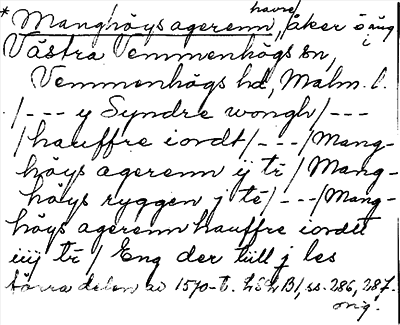 * Manghöys agerenn, havre åker ö äng i
Västra Vemmenhögs sn,
Vemmenhögs hd, Malm. l.
/--- y Syndre wongh/---
/hauffre iordt/---/Mang-
höys agerenn ij tr̄/Mang-
höys ryggen j te/---/Mang-
höys agerenn hauffre iordtt
iiij tr̄/ Eng der till j les
Södra delen av 1570-t. LÖLB1, ss. 286, 287.
orig.